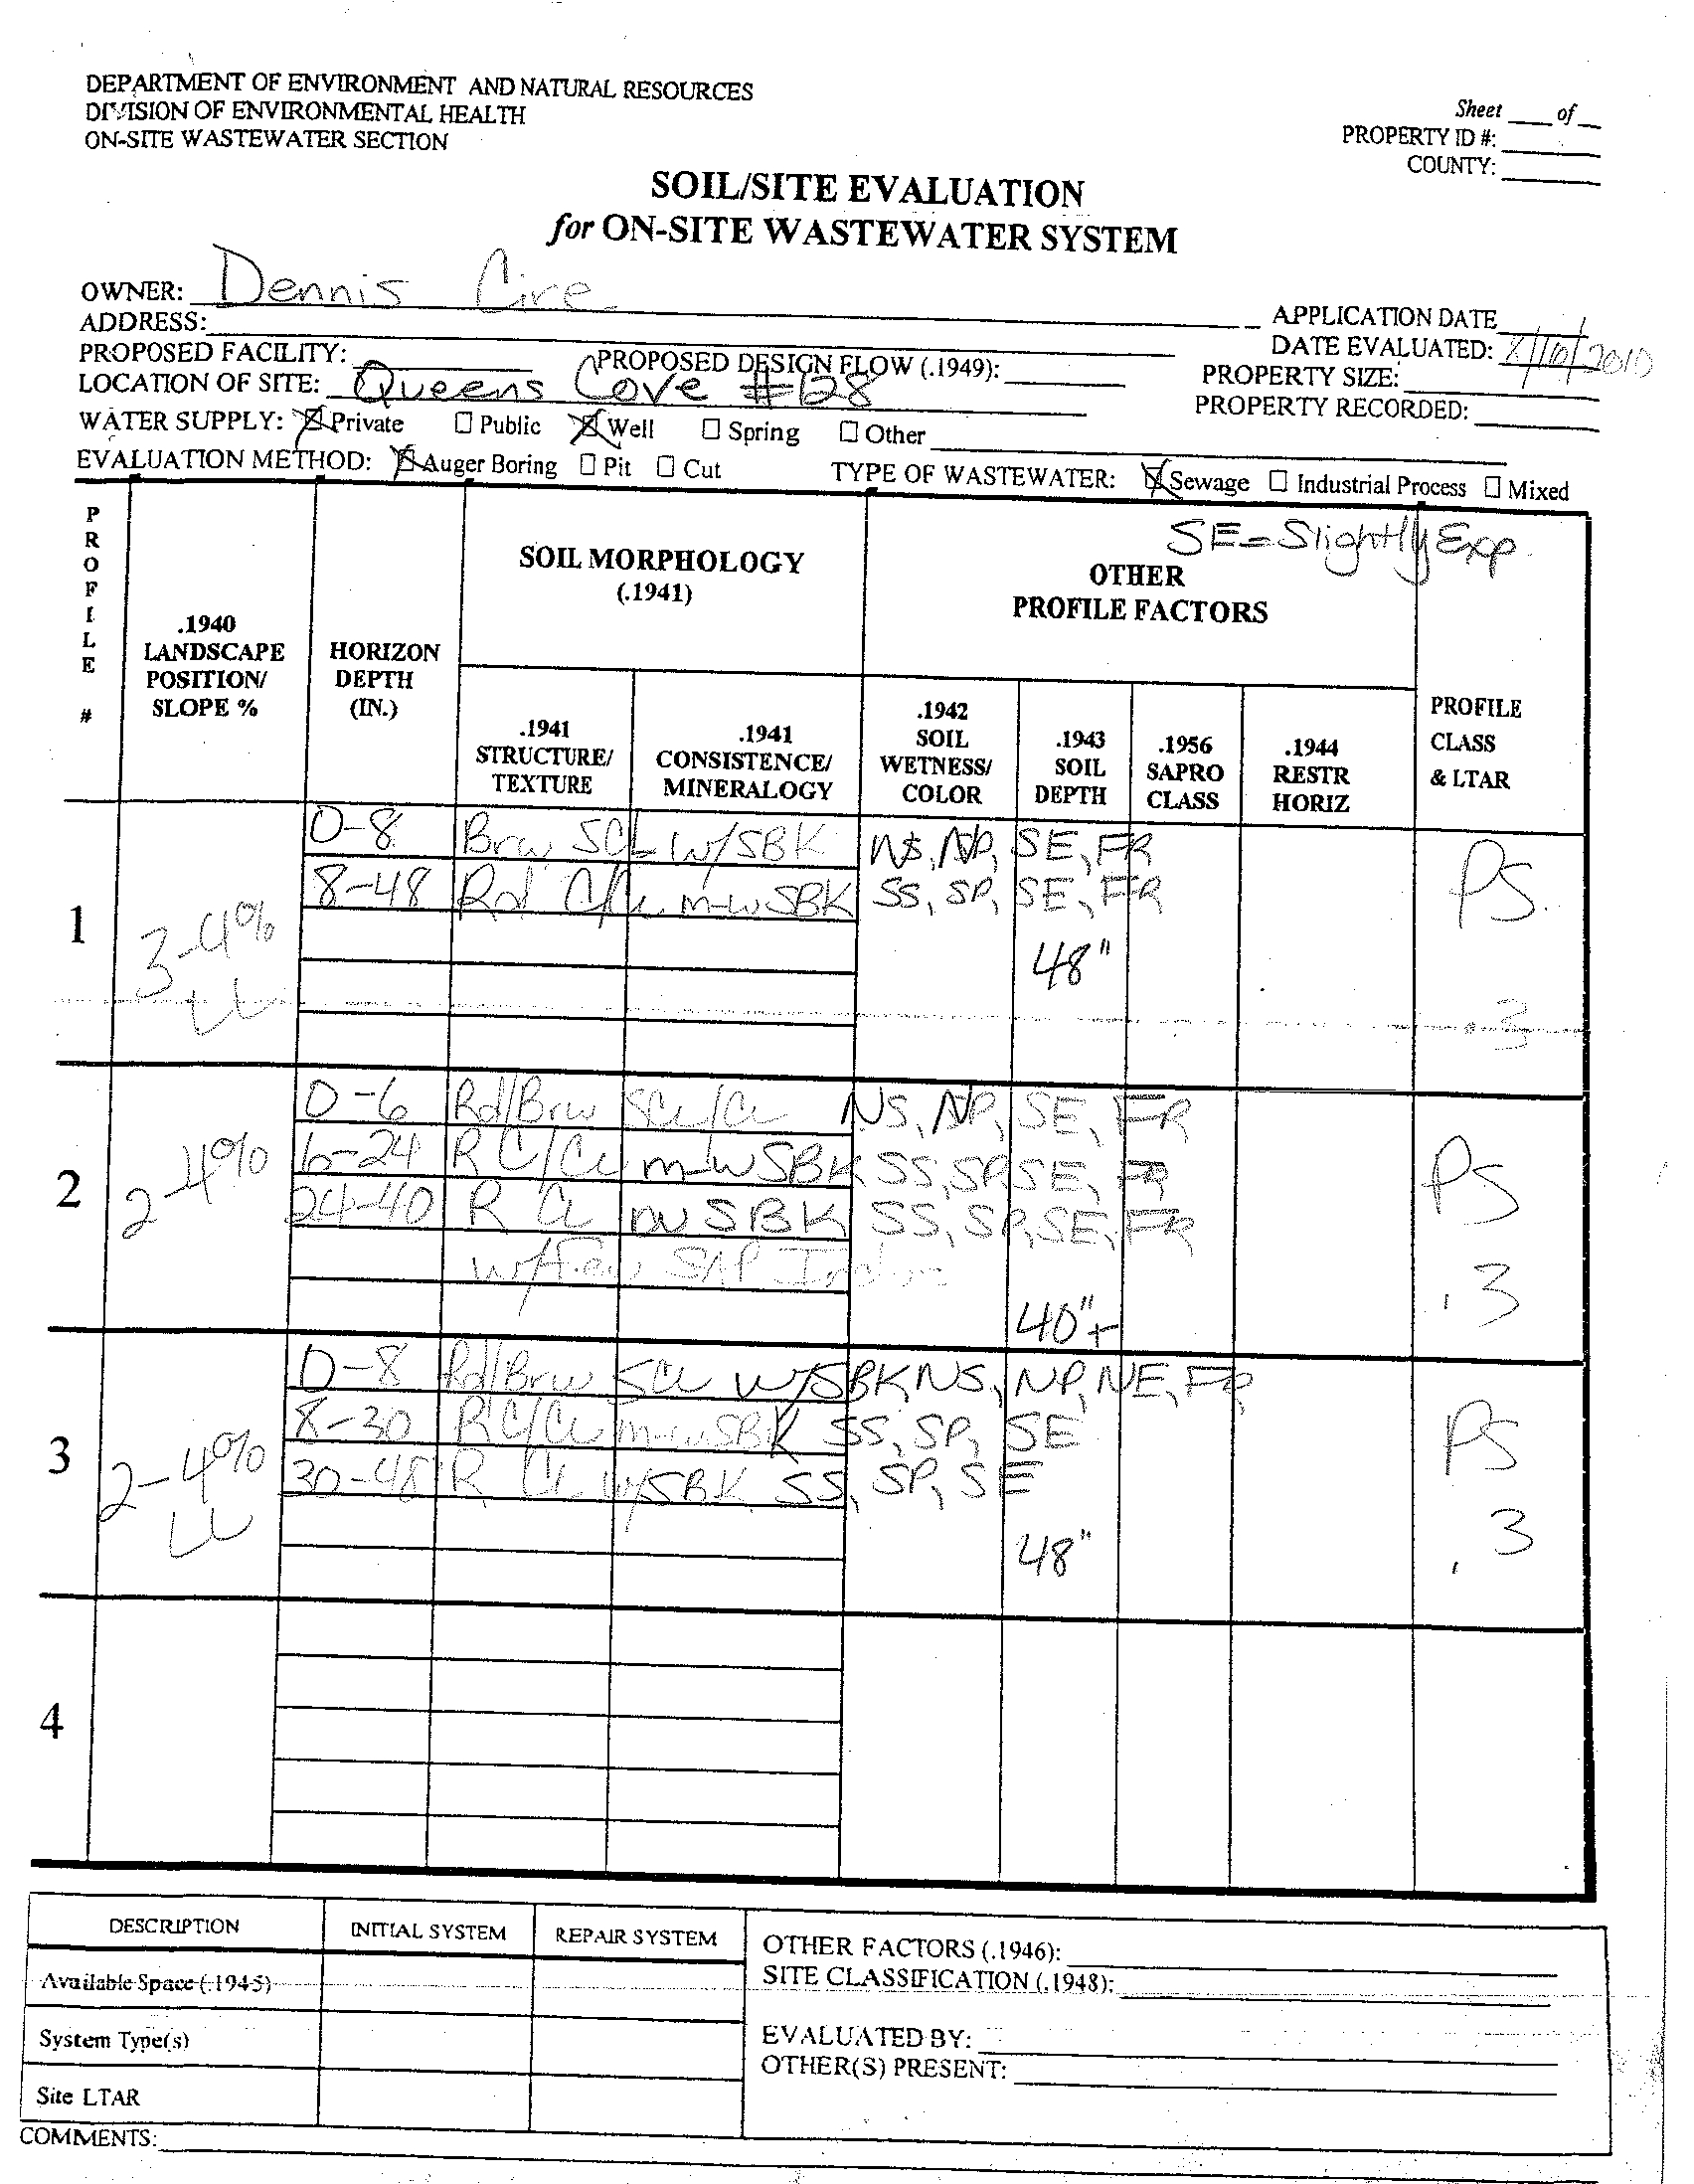 DEPARTMENT OF ENVIRONMENT AND NATURAL RESOURCES
DIVISION OF ENVIRONMENTAL HEALTH
ON-SITE WASTEWATER SECTION
Sheet ___ of __
PROPERTY ID #:
COUNTY:
SOIL/SITE EVALUATION
for ON-SITE WASTEWATER SYSTEM
OWNER: Dennis Cire
ADDRESS:
APPLICATION DATE
PROPOSED FACILITY: PROPOSED DESIGN FLOW (.1949):
DATE EVALUATED: 8/16/2010
LOCATION OF SITE: Queens Cove #128
PROPERTY SIZE:
PROPERTY RECORDED:
WATER SUPPLY: ☒ Private ☐ Public ☒ Well ☐ Spring ☐ Other
EVALUATION METHOD: ☒ Auger Boring ☐ Pit ☐ Cut TYPE OF WASTEWATER: ☒ Sewage ☐ Industrial Process ☐ Mixed
SE=Slightly Exp.
PROFILE #
.1940 LANDSCAPE POSITION/ SLOPE %
HORIZON DEPTH (IN.)
SOIL MORPHOLOGY (.1941)
OTHER PROFILE FACTORS
.1941 STRUCTURE/ TEXTURE
.1941 CONSISTENCE/ MINERALOGY
.1942 SOIL WETNESS/ COLOR
.1943 SOIL DEPTH
.1956 SAPRO CLASS
.1944 RESTR HORIZ
PROFILE CLASS & LTAR
1
3-4%
LL
0-8 Brw SCL W/SBK NS, NP, SE, FR
8-48 Rd C/CL m-wSBK SS, SP, SE, FR
48"
PS
.3
2
2-4%
0-6 Rd/Brw SCL/CL NS, NP, SE, FR
6-24 R C/CL m-wSBK SS, SP, SE, FR
24-40 R CL SBK SS, SP, SE, FR
w/Few SAP
40"+
PS
.3
3
2-4%
LL
0-8 Rd/Brw SCL W/SBK NS, NP, NE, FR
8-30 R C/CL m-wSBK SS, SP, SE
30-48 R CL W/SBK SS, SP, SE
48"
PS
.3
4
DESCRIPTION INITIAL SYSTEM REPAIR SYSTEM
Available Space (.1945)
System Type(s)
Site LTAR
OTHER FACTORS (.1946):
SITE CLASSIFICATION (.1948):
EVALUATED BY:
OTHER(S) PRESENT:
COMMENTS: